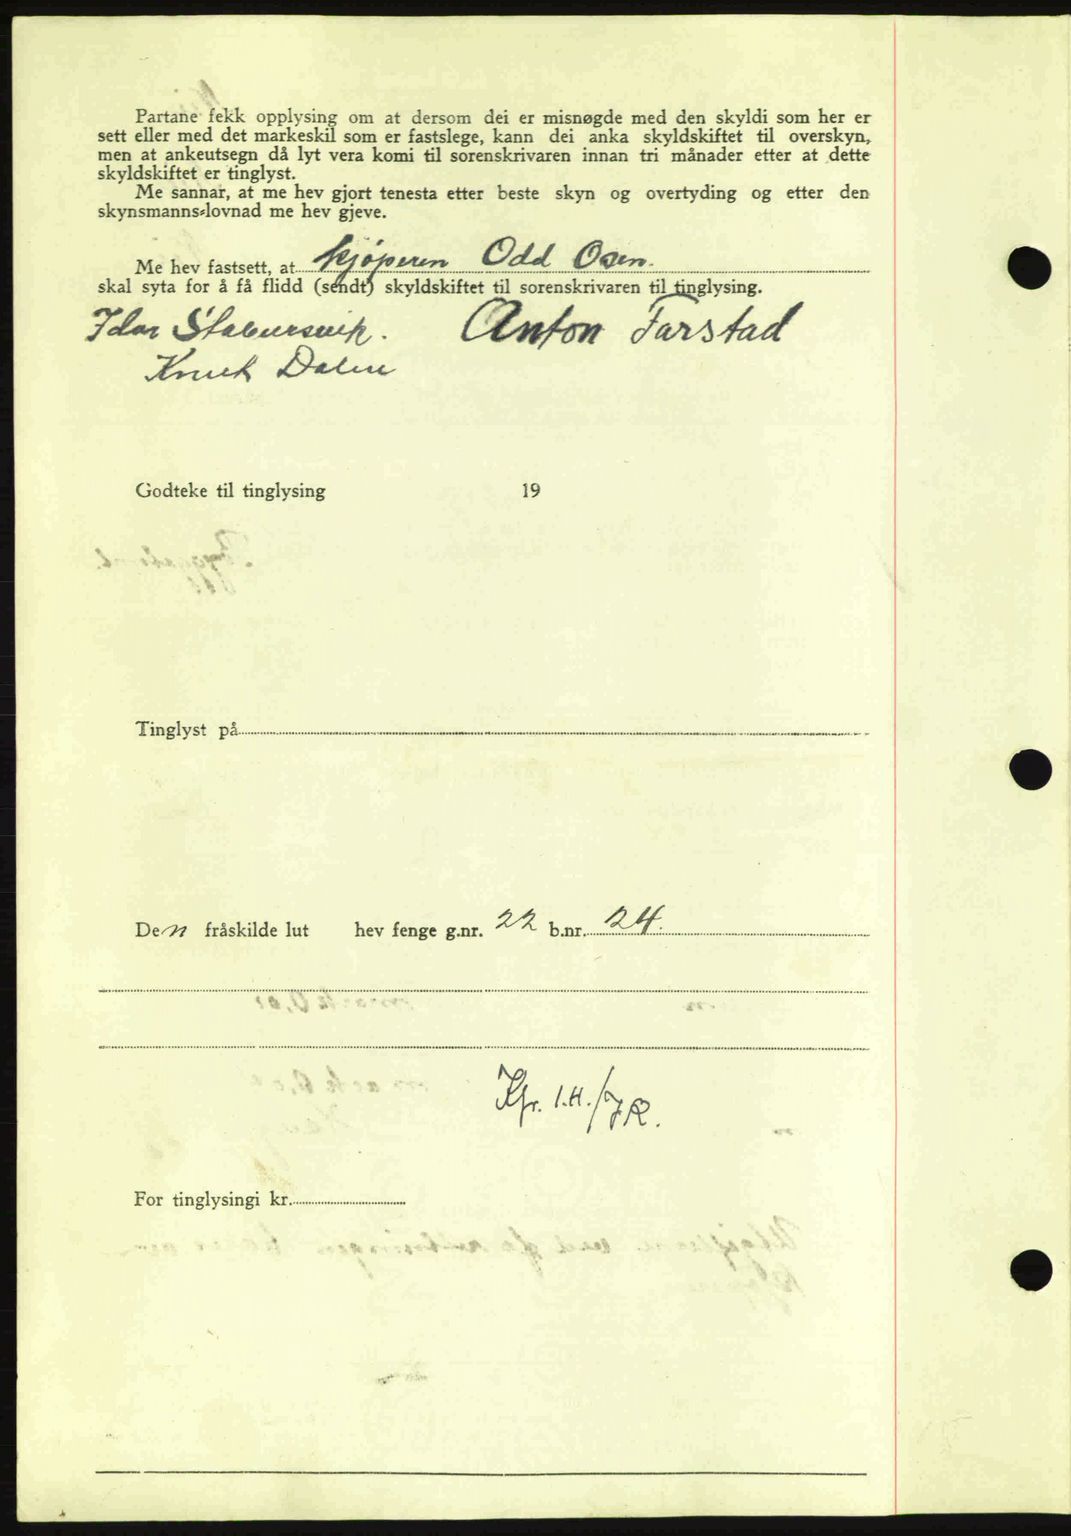 Partane fekk opplysing om at dersom dei er misnøgde med den skyldi som her er
sett eller med det markeskil som er fastslege, kann dei anka skyldskiftet til overskyn,
men at ankeutsegn då lyt vera komi til sorenskrivaren innan tri månader etter at dette
skyldskiftet er tinglyst.
Me sannar, at me hev gjort tenesta etter beste skyn og overtyding og etter den
skynsmanns-lovnad me hev gjeve.
Me hev fastsett, at kjøperen Odd Osen.
skal syta for å få flidd (sendt) skyldskiftet til sorenskrivaren til tinglysing.
Idar Stabursvik. Anton Farstad
Knut Dalen
Godteke til tinglysing 19
Tinglyst på
Den fråskilde lut hev fenge g.nr. 22 b.nr. 24.
Kfr. I.H./JR.
For tinglysingi kr.